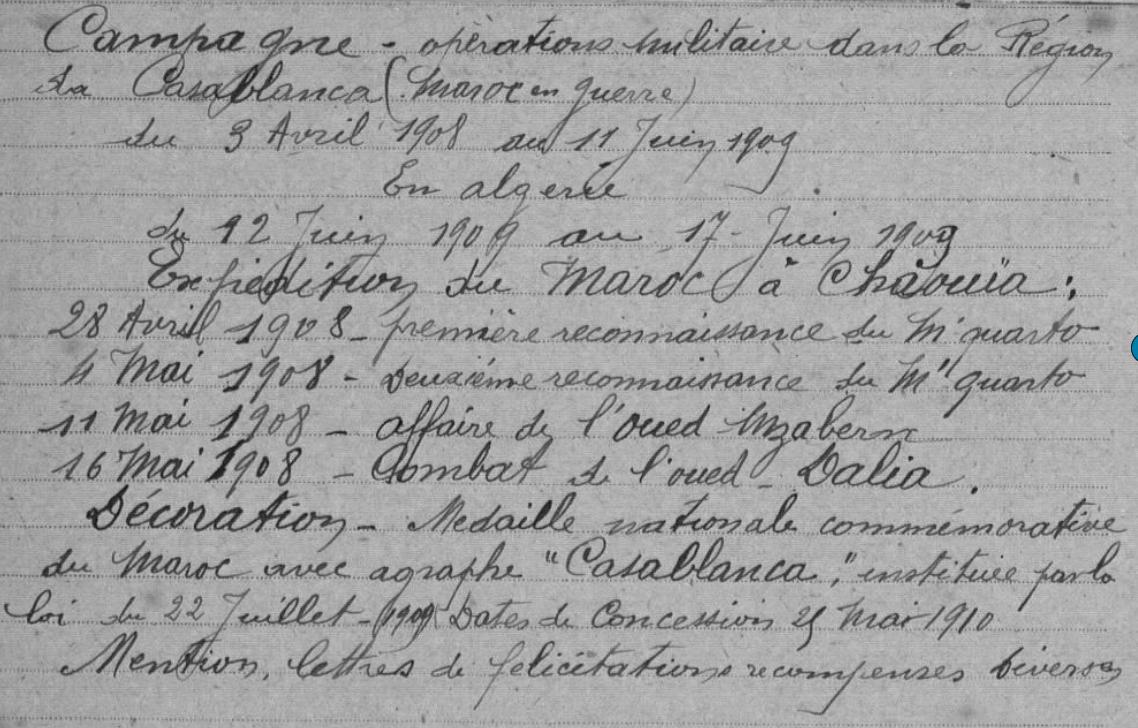 Campagne - opèrations militaire dans la Région
da Casablanca (Maroc en guerre)
du 3 Avril 1908 au 11 Juin 1909
En algerie
du 12 Juin 1909 au 17 - Juin 1909
Expiedition du Maroc à Chàouïa :
28 Avril 1908 - première reconnaissance du M' quarto
4 Mai 1908 - Deuxième reconnaissance du M' quarto
11 Mai 1908 - affaire de l'oued
16 Mai 1908 - Combat de l'oued - Dalia.
Décoration - Medaille nationale commémorative
du Maroc avec agraphe "Casablanca," instituée par la
loi du 22 Juillet - 1909 Dates de Concession 25 Mai 1910
Mention, lettres de félicitations recompenses Diverses